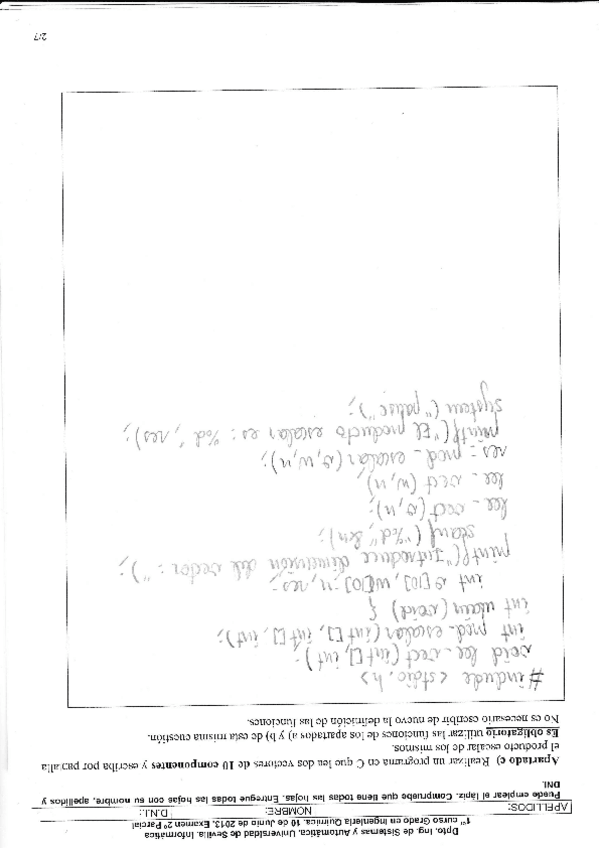 Dpto. Ing. de Sistemas y Automática. Universidad de Sevilla. Informática
1er curso Grado en Ingeniería Química. 10 de Junio de 2013. Examen 2º Parcial
APELLIDOS: NOMBRE: D.N.I.:
Puede emplear el lápiz. Compruebe que tiene todas las hojas. Entregue todas las hojas con su nombre, apellidos y
DNI.
Apartado c) Realizar un programa en C que lea dos vectores de 10 componentes y escriba por pantalla
el producto escalar de los mismos.
Es obligatorio utilizar las funciones de los apartados a) y b) de esta misma cuestión.
No es necesario escribir de nuevo la definición de las funciones.
#include <stdio.h>
void lee_vect (int[], int);
int prod_escalar (int[], int[], int);
int main (void) {
int v[10], w[10], n, res;
printf("Introduce dimensión del vector: ");
scanf ("%d", &n);
lee_vect (v,n);
lee_vect (w,n);
res = prod_escalar (v,w,n);
printf("El producto escalar es: %d", res);
system ("pause");
2/7